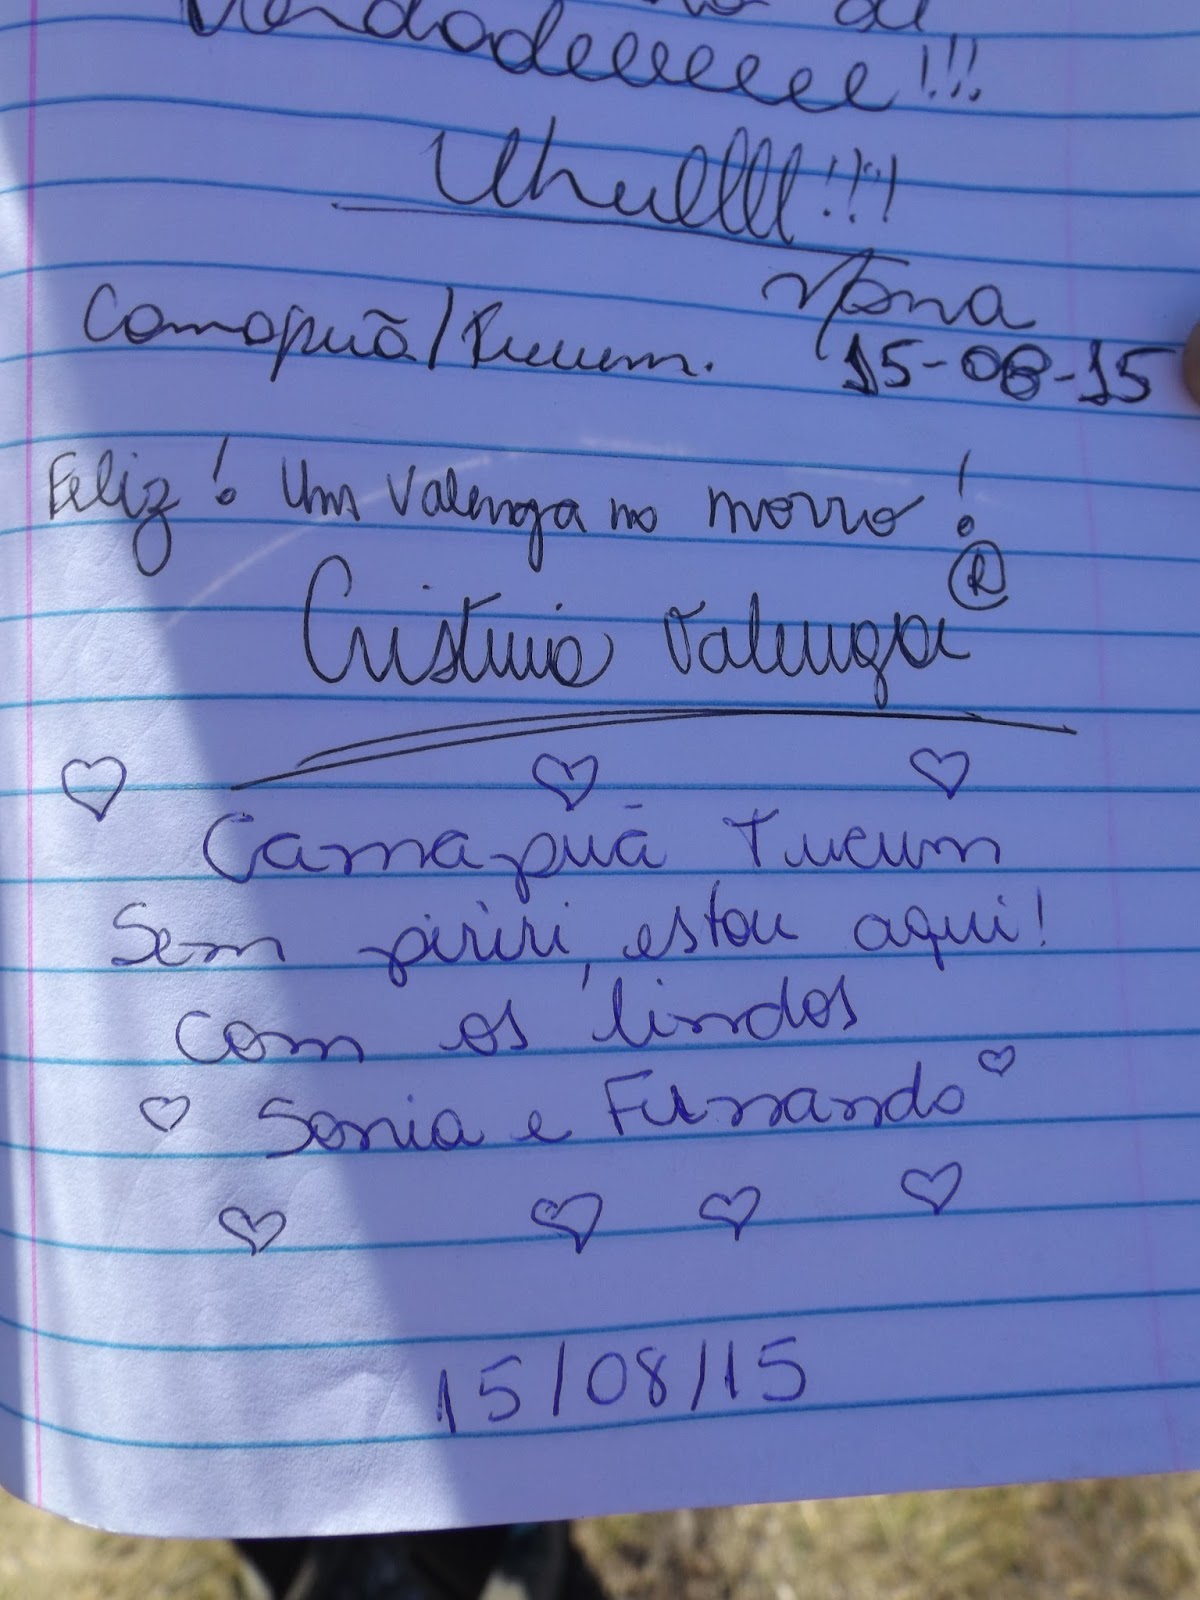 de
Verdadeeeeeee!!!
Uhullll!!!
Camapuã/Tucum.
15-08-15
Feliz! Um Valenga no morro!
Cristina Valenga ®
Camapuã Tucum
Sem piriri, estou aqui!
com os lindos
Sonia e Fernando
15/08/15